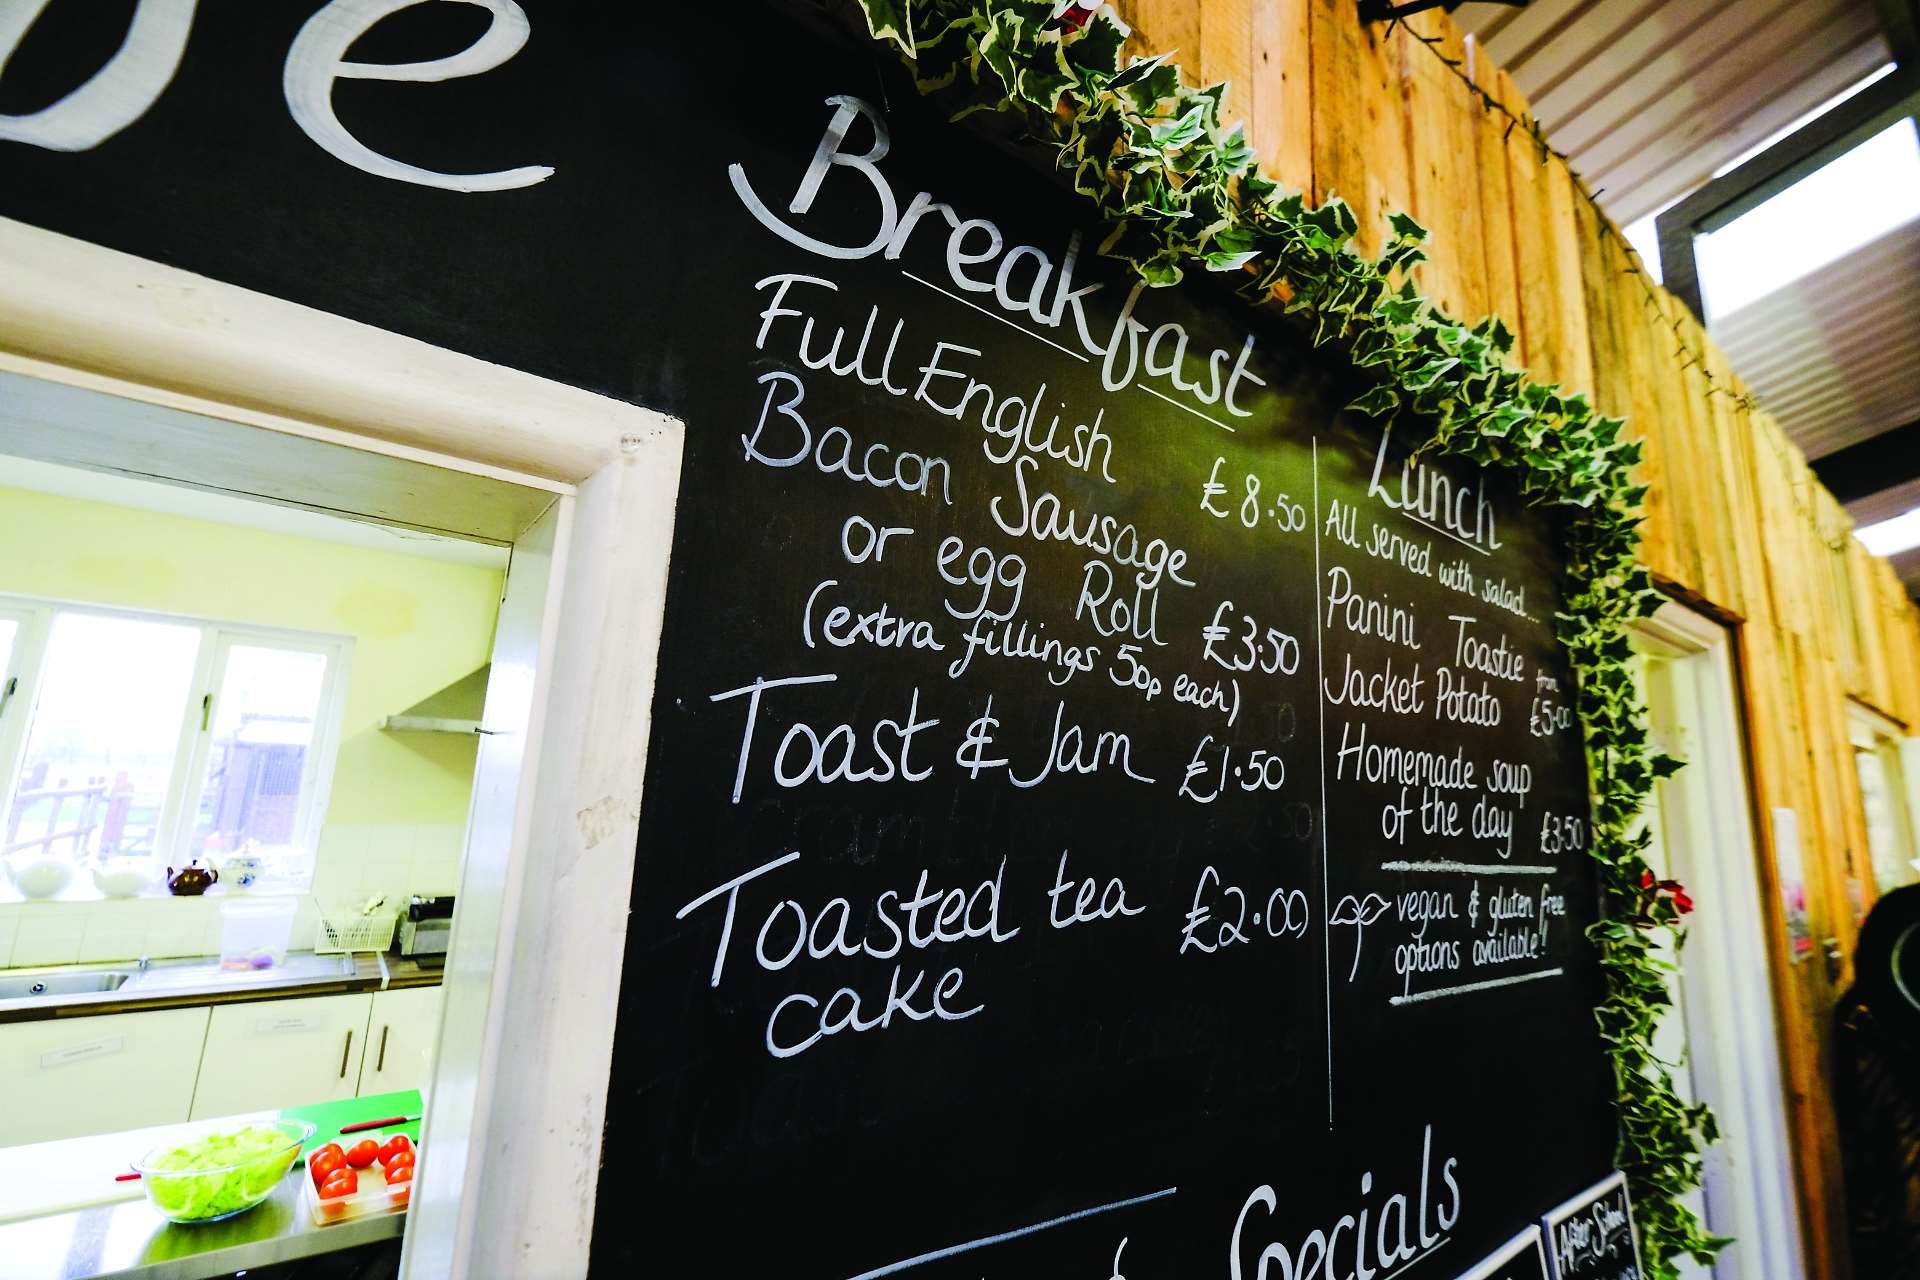 Breakfast
Full English £8.50
Bacon Sausage
or egg Roll £3.50
(extra fillings 50p each)
Toast & Jam £1.50
Toasted tea £2.00
cake
Lunch
All served with salad....
Panini Toastie
Jacket Potato from £5.00
Homemade soup
of the day £3.50
vegan & gluten free
options available!!
Specials
After School